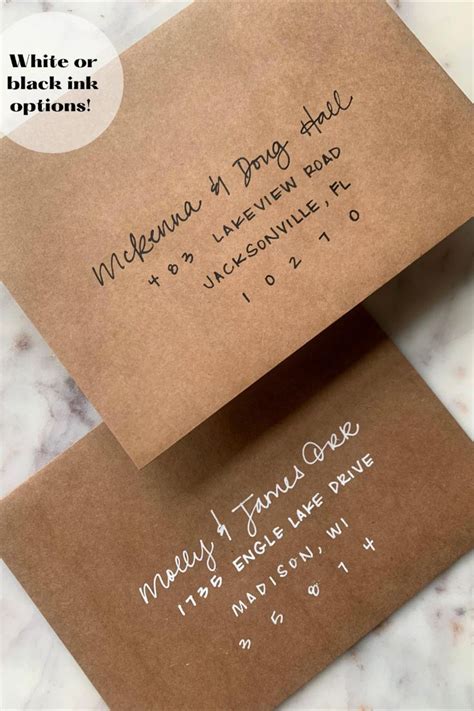 White or
black ink
options!
McKenna & Doug Hall
483 LAKEVIEW ROAD
JACKSONVILLE, FL
10270
Molly & James Orr
1735 ENGLE LAKE DRIVE
MADISON, WI
35874